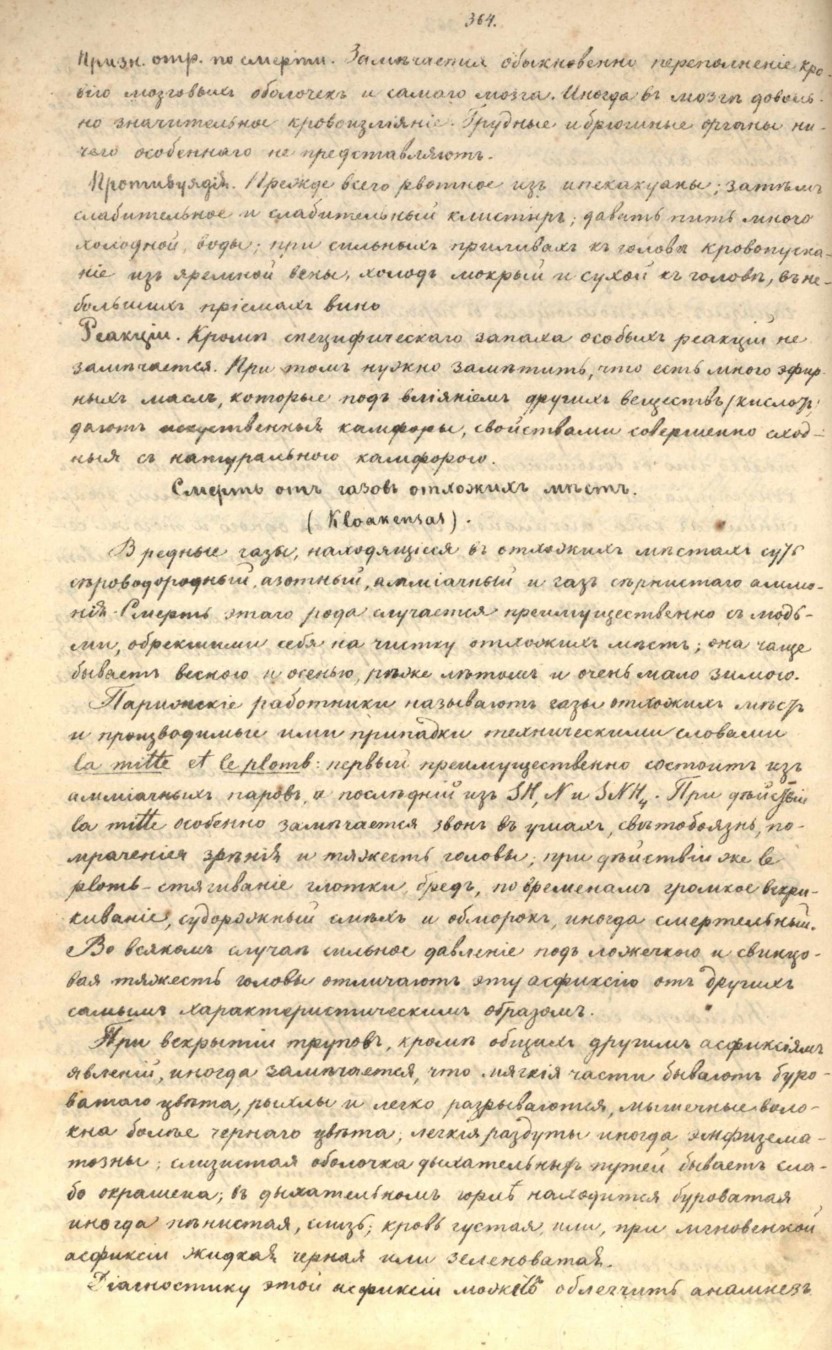 364.
Призн. отр. по смерти. Замѣчается обыкновенно переполненіе кро-
вію мозговыхъ оболочекъ и самаго мозга. Иногда въ мозгѣ доволь-
но значительное кровоизліяніе. Грудные и брюшные органы ни-
чего особеннаго не представляютъ.
Противуядія. Прежде всего рвотное изъ ипекакуаны; затѣмъ
слабительное и слабительный клистиръ; давать пить много
холодной воды; при сильныхъ приливахъ къ головѣ кровопуска-
ніе изъ яремной вены, холодъ мокрый и сухой къ головѣ, въ не-
большихъ пріемахъ вино
Реакціи. Кромѣ специфическаго запаха особыхъ реакцій не
замѣчается. При томъ нужно замѣтить, что есть много эфир-
ныхъ маслъ, которые подъ вліяніемъ другихъ веществъ (кислотъ)
даютъ искуственныя камфоры, свойствами совершенно сход-
ныя съ натуральною камфорою.
Смерть отъ газовъ отхожихъ мѣстъ.
(Kloakengas).
Вредные газы, находящіеся въ отхожихъ мѣстахъ суть
сѣроводородный, азотный, амміачный и газъ сѣрнистаго аммо-
нія. Смерть этаго рода случается преимущественно съ людь-
ми, обрекшими себя на чистку отхожихъ мѣстъ; она чаще
бываетъ весною и осенью, рѣже лѣтомъ и очень мало зимою.
Парижскіе работники называютъ газы отхожихъ мѣстъ
и производимые ими припадки техническими словами
la mitte et le plomb: первый преимущественно состоитъ изъ
амміачныхъ паровъ, а послѣдній изъ SH, N и SNH4. При дѣйствіи
la mitte особенно замѣчается звонъ въ ушахъ, свѣтобоязнь, по-
мраченіея зрѣнія и тяжесть головы; при дѣйствіи же le
plomb – стягиваніе глотки, бредъ, по временамъ громкое вскри-
киваніе, судорожный смѣхъ и обморокъ, иногда смертельный.
Во всякомъ случаѣ сильное давленіе подъ ложечкою и свинцо-
вая тяжесть головы отличаютъ эту асфиксію отъ другихъ
самымъ характеристическимъ образомъ.
При вскрытіи труповъ, кромѣ общихъ другимъ асфиксіямъ
явленій, иногда замѣчается, что мягкія части бываютъ буро-
ватаго цвѣта, рыхлы и легко разрываются, мышечные воло-
кна болѣе чернаго цвѣта; легкія раздуты иногда эмфизема-
тозны; слизистая оболочка дыхательныхъ путей бываетъ сла-
бо окрашена; въ дыхательномъ горлѣ находится буроватая
иногда пѣнистая, слизь; кровь густая, или, при мгновенной
асфиксіи жидкая черная или зеленоватая.
Діагностику этой асфиксіи можетъ облегчить анамнезъ